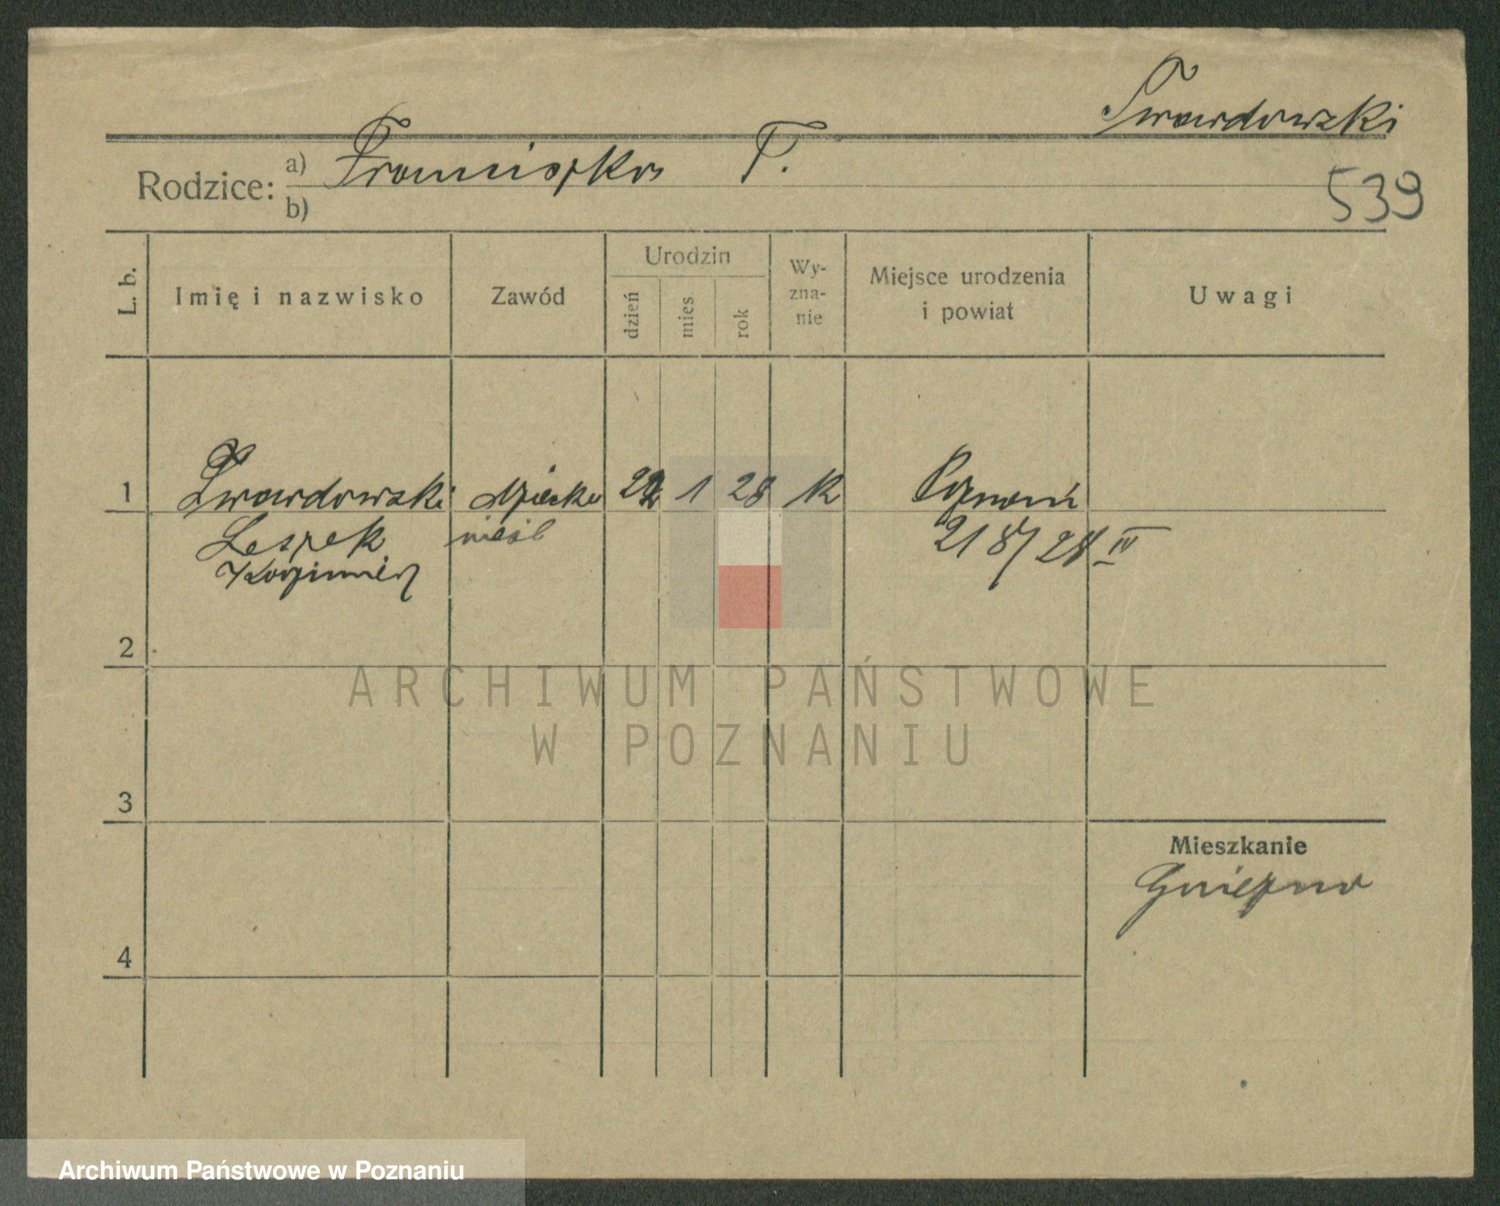 Twardowski
Rodzice: a) Franciszka T.
b)
539
L. b.
Imię i nazwisko
Zawód
Urodzin
dzień
mies
rok
Wy-
zna-
nie
Miejsce urodzenia
i powiat
Uwagi
1 Twardowski dziecko 22 1 28 K Poznań
Leszek nieśl 218/28 IV
Kazimierz
2
3
Mieszkanie
Gniezno
4
ARCHIWUM PAŃSTWOWE
W POZNANIU
Archiwum Państwowe w Poznaniu